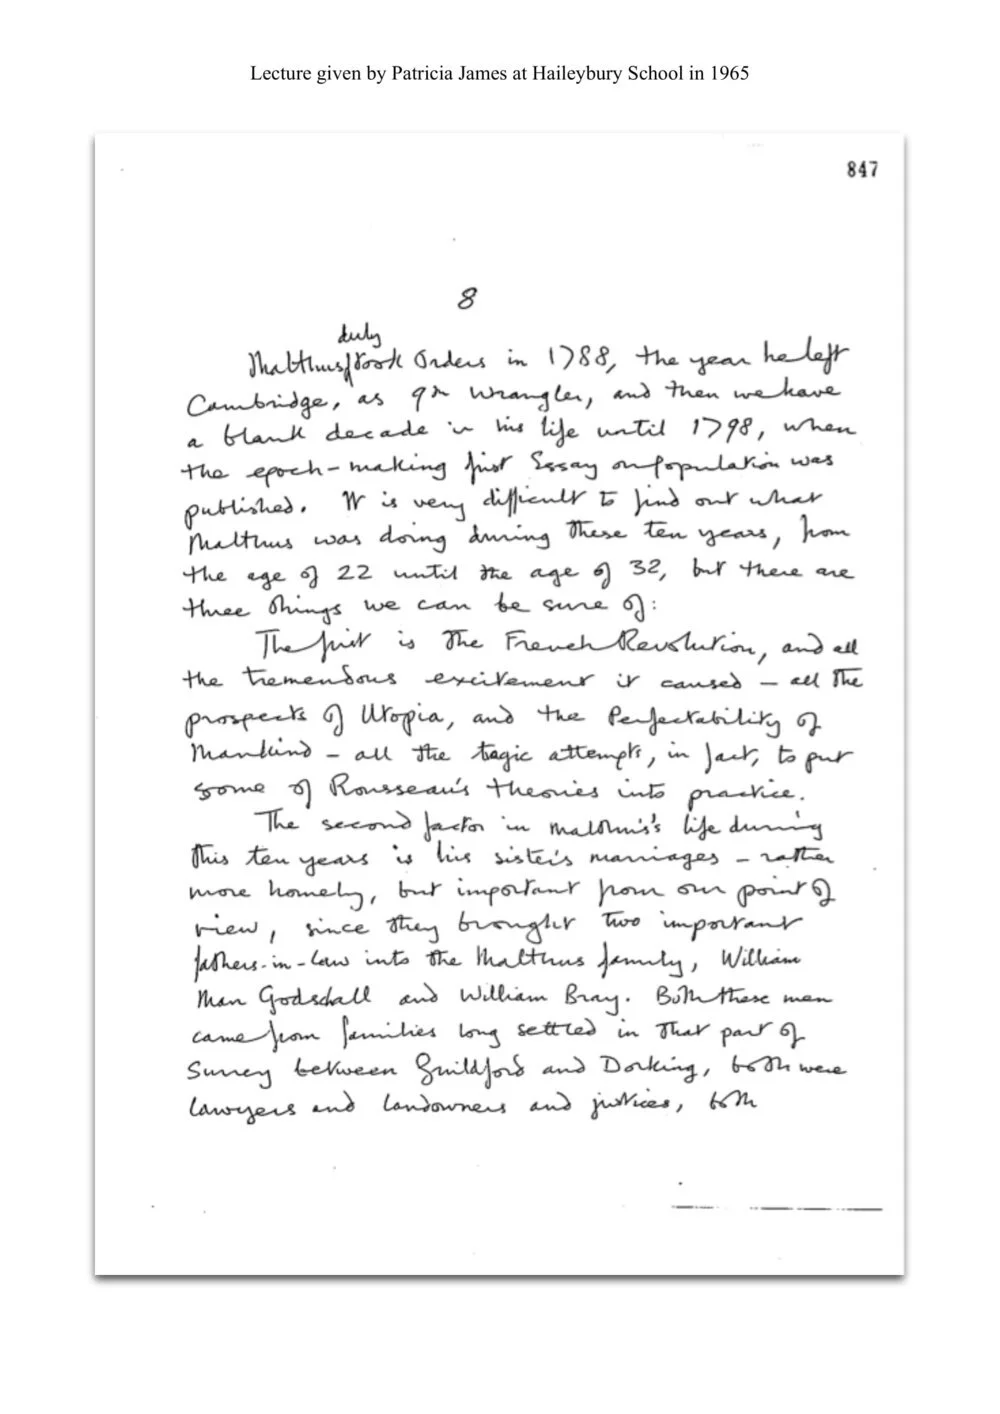 Lecture given by Patricia James at Haileybury School in 1965
847
8
duly
Malthus took Orders in 1788, the year he left
Cambridge, as 9th Wrangler, and then we have
a blank decade in his life until 1798, when
the epoch-making first Essay on population was
published. It is very difficult to find out what
Malthus was doing during these ten years, from
the age of 22 until the age of 32, but there are
three things we can be sure of:
The first is the French Revolution, and all
the tremendous excitement it caused – all the
prospects of Utopia, and the Perfectability of
Mankind – all the tragic attempts, in fact, to put
some of Rousseau's theories into practice.
The second factor in Malthus's life during
this ten years is his sister's marriages – rather
more homely, but important from our point of
view, since they brought two important
fathers-in-law into the Malthus family, William
Man Godschall and William Bray. Both these men
came from families long settled in that part of
Surrey between Guildford and Dorking, both were
lawyers and landowners and justices, both